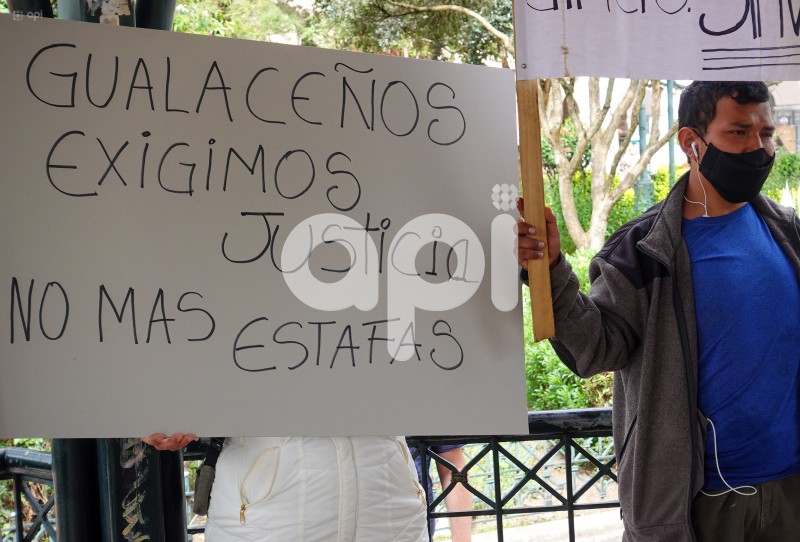 GUALACEÑOS
EXIGIMOS
JUSTICIA
NO MAS ESTAFAS
api
api